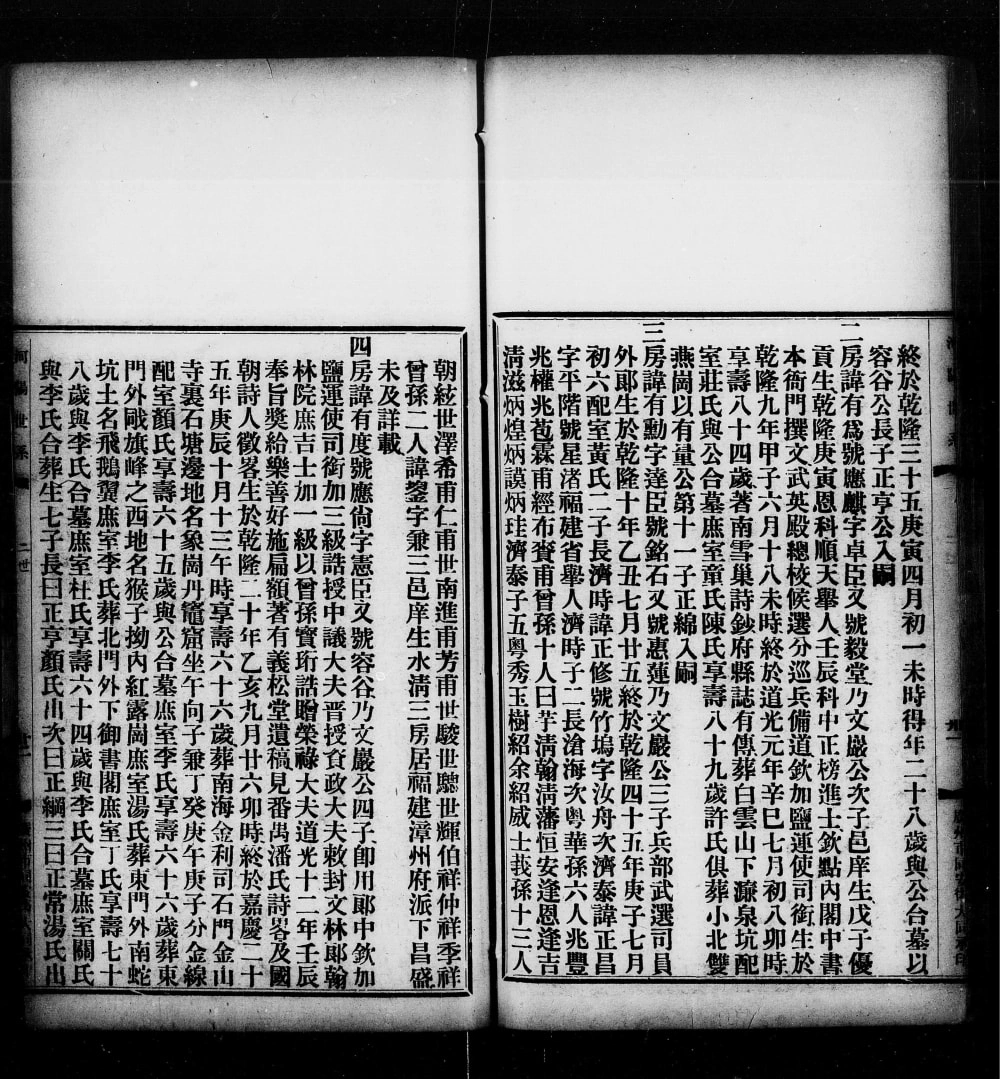 終於乾隆三十五庚寅四月初一未時得年二十八歲與公合墓以
容谷公長子正亨公入嗣
二房諱有爲號應麒字卓臣又號毅堂乃文巖公次子邑庠生戊子優
貢生乾隆庚寅恩科順天舉人壬辰科中正榜進士欽點內閣中書
本衙門撰文武英殿總校候選分巡兵備道欽加鹽運使司銜生於
乾隆九年甲子六月十八未時終於道光元年辛巳七月初八卯時
享壽八十四歲著南雪巢詩鈔府縣誌有傳葬白雲山下濂泉坑配
室莊氏與公合墓庶室童氏陳氏享壽八十九歲許氏俱葬小北雙
燕岡以有量公第十一子正綿入嗣
三房諱有勳字達臣號銘石又號惠蓮乃文巖公三子兵部武選司員
外郞生於乾隆十年乙丑七月廿五終於乾隆四十五年庚子七月
初六配室黃氏二子長濟時諱正修號竹塢字汝舟次濟泰諱正昌
字平階號星渚福建省舉人濟時子二長滄海次粵華孫六人兆豐
兆權兆苞霖甫經布賓甫曾孫十人曰芊淸翰淸藩恒安逢恩逢吉
淸滋炳煌炳謨炳珪濟泰子五粵秀玉樹紹余紹威士莪孫十三人
朝絃世澤希甫仁甫世南進甫芳甫世駿世驄世輝伯祥仲祥季祥
曾孫二人諱鋆字兼三邑庠生水淸三房居福建漳州府派下昌盛
未及詳載
四房諱有度號應尙字憲臣又號容谷乃文巖公四子卽用郞中欽加
鹽運使司銜加三級誥授中議大夫晋授資政大夫敕封文林郞翰
林院庶吉士加一級以曾孫寳珩誥贈榮祿大夫道光十二年壬辰
奉旨奬給樂善好施扁額著有義松堂遺稿見番禺潘氏詩畧及國
朝詩人徵畧生於乾隆二十年乙亥九月廿六卯時終於嘉慶二十
五年庚辰十月十三午時享壽六十六歲葬南海金利司石門金山
寺裏石塘邊地名象岡丹竈窟坐午向子兼丁癸庚午庚子分金線
配室顏氏享壽六十五歲與公合墓庶室李氏享壽六十六歲葬東
門外瞰旗峰之西地名猴子拗內紅露崗庶室湯氏葬東門外南蛇
坑土名飛鵝翼庶室李氏葬北門外下御書閣庶室丁氏享壽七十
八歲與李氏合墓庶室杜氏享壽六十四歲與李氏合墓庶室關氏
與李氏合葬生七子長曰正亨顏氏出次曰正綱三曰正常湯氏出
河陽世系
二世